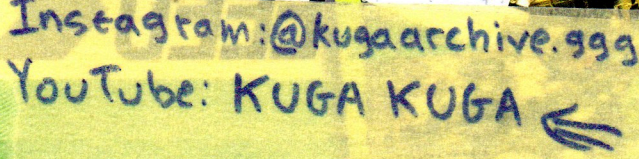 Instagram:@kugaarchive.ggg
YouTube: KUGA KUGA